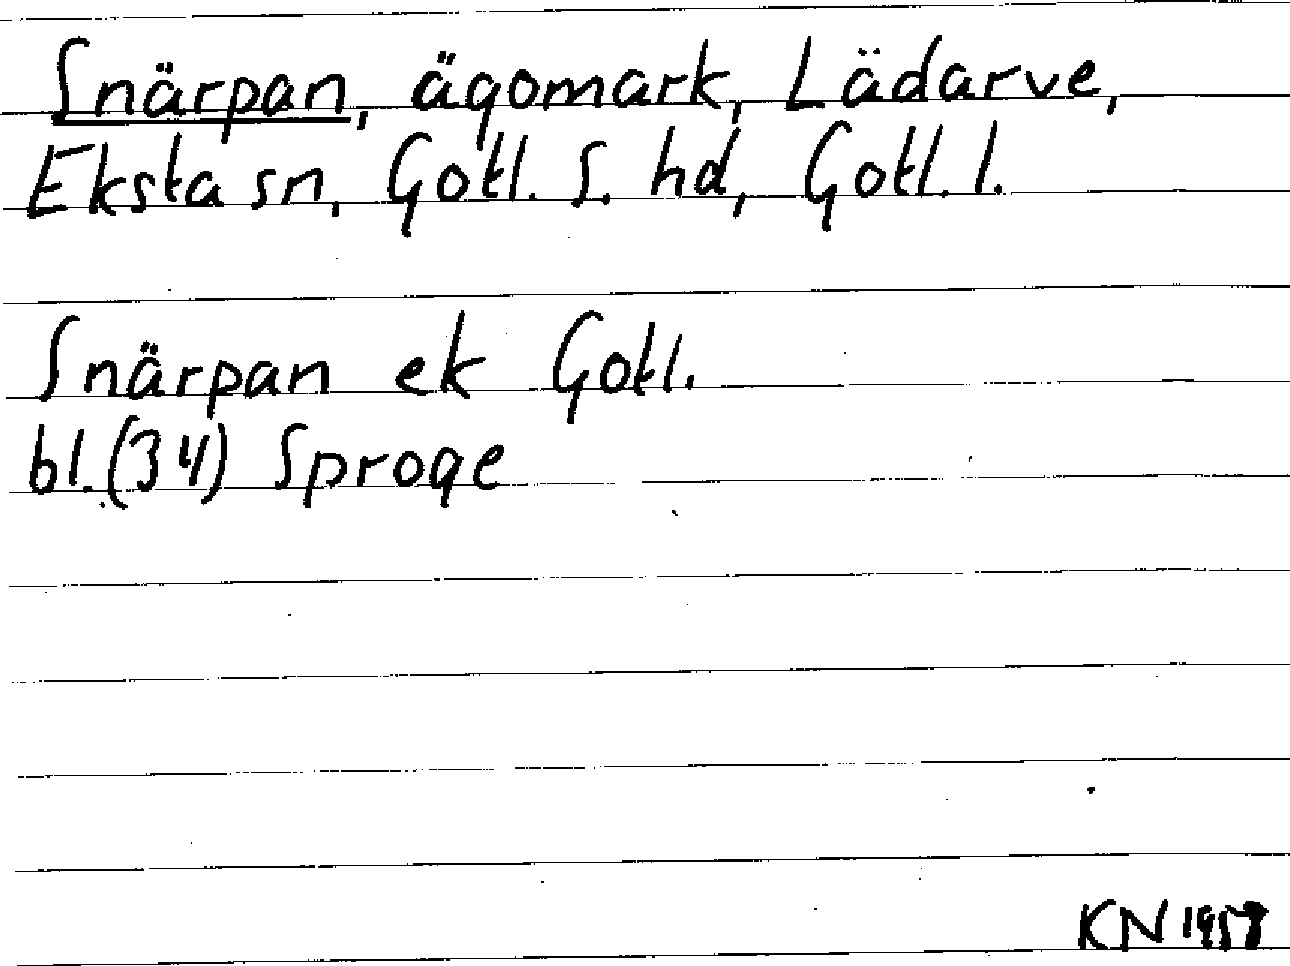 Snärpan, ägomark, Lädarve,
Eksta sn, Gotl. S. hd, Gotl. l.
Snärpan ek Gotl.
bl. (34) Sproge
KN